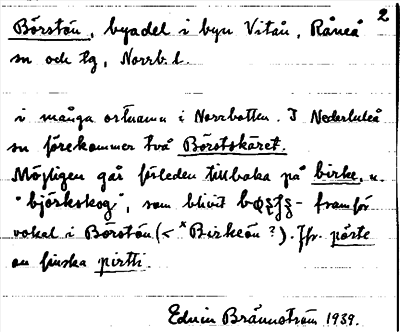 2
Börstön, byadel i byn Vitån, Råneå
sn och tg, Norrb. l.
i många ortnamn i Norrbotten. I Nederluleå
sn förekommer två Börstskäret.
Möjligen går förleden tillbaka på birke, n.
"björkskog", som blivit - framför
vokal i Börstön (< *Birkeön ?). Jfr. pörte
av finska pirtti.
Edvin Brännström 1939.